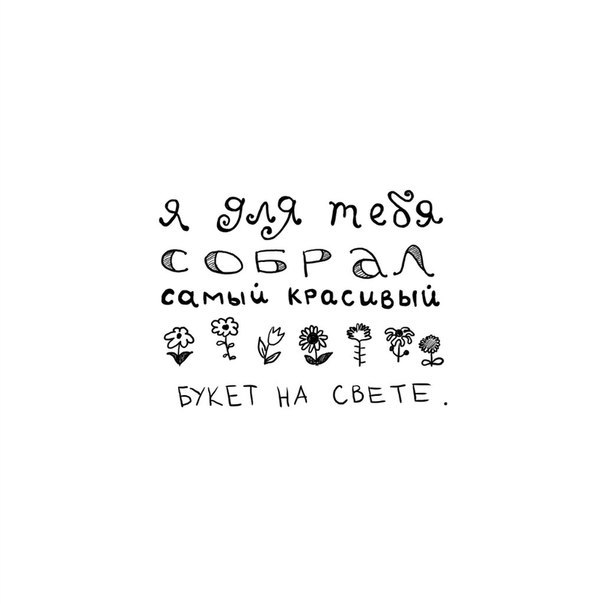 я для тебя
СОБРАЛ
самый красивый
БУКЕТ НА СВЕТЕ.